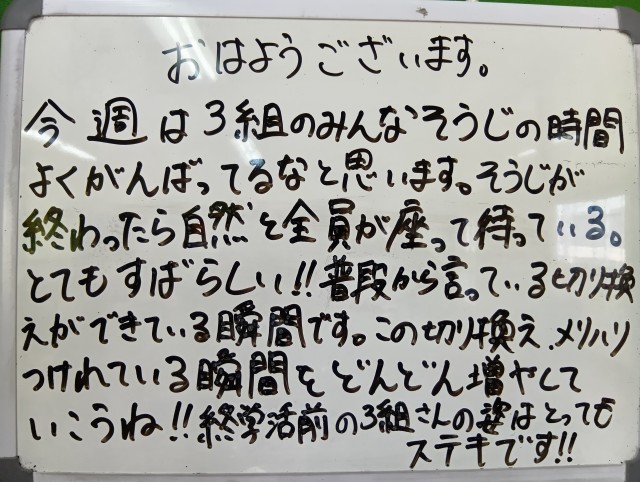 おはようございます。
今週は3組のみんなそうじの時間
よくがんばってるなと思います。そうじが
終わったら自然と全員が座って待っている。
とてもすばらしい!!普段から言っている切り換
えができている瞬間です。この切り換え、メリハリ
つけれている瞬間をどんどん増やして
いこうね!!終学活前の3組さんの姿はとっても
ステキです!!